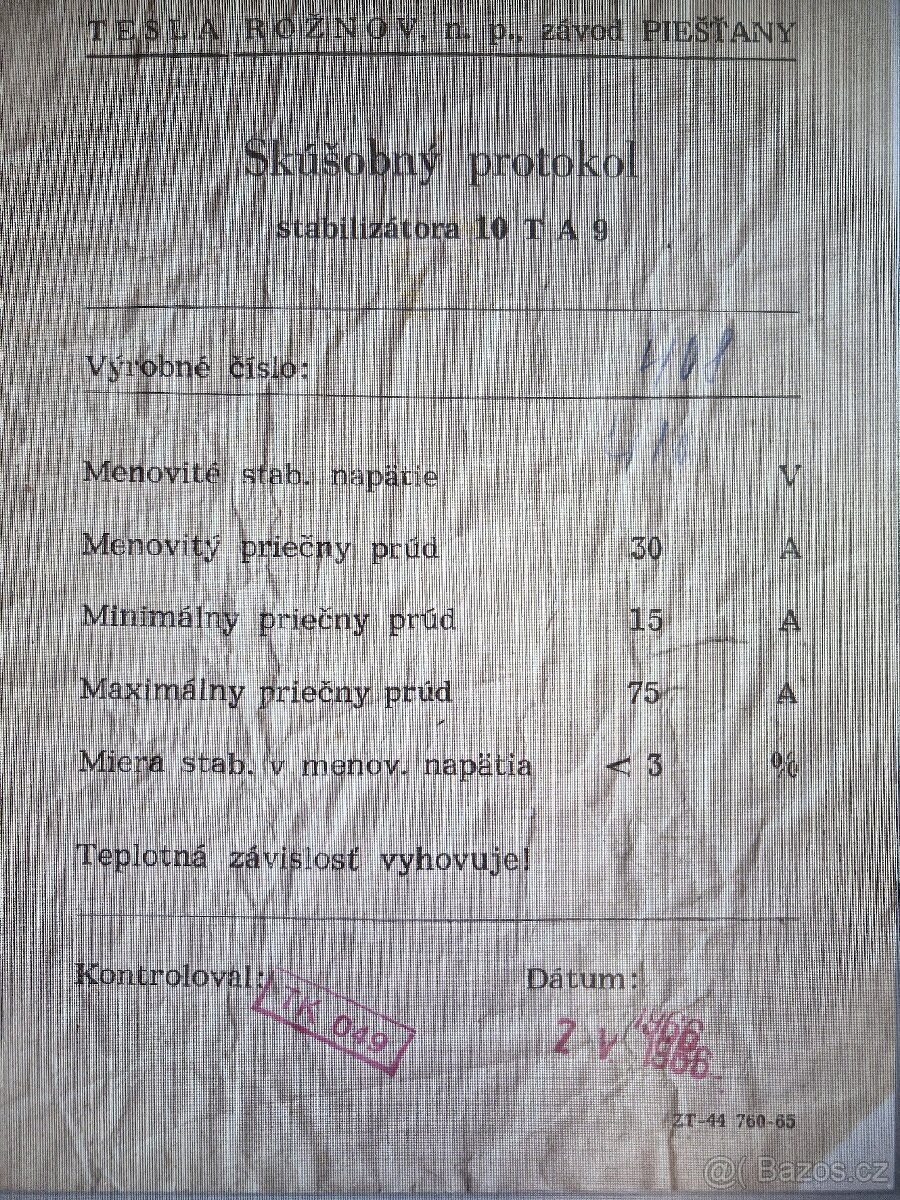 TESLA ROŽNOV, n. p., závod PIEŠŤANY
Skúšobný protokol
stabilizátora 10 T A 9
Výrobné číslo:
Menovité stab. napätie V
Menovitý priečny prúd 30 A
Minimálny priečny prúd 15 A
Maximálny priečny prúd 75 A
Miera stab. v menov. napätia < 3 %
Teplotná závislosť vyhovuje!
Kontroloval: Dátum:
TK 049
2 V 1966
1966
ZT-44 760-65
Bazos.cz